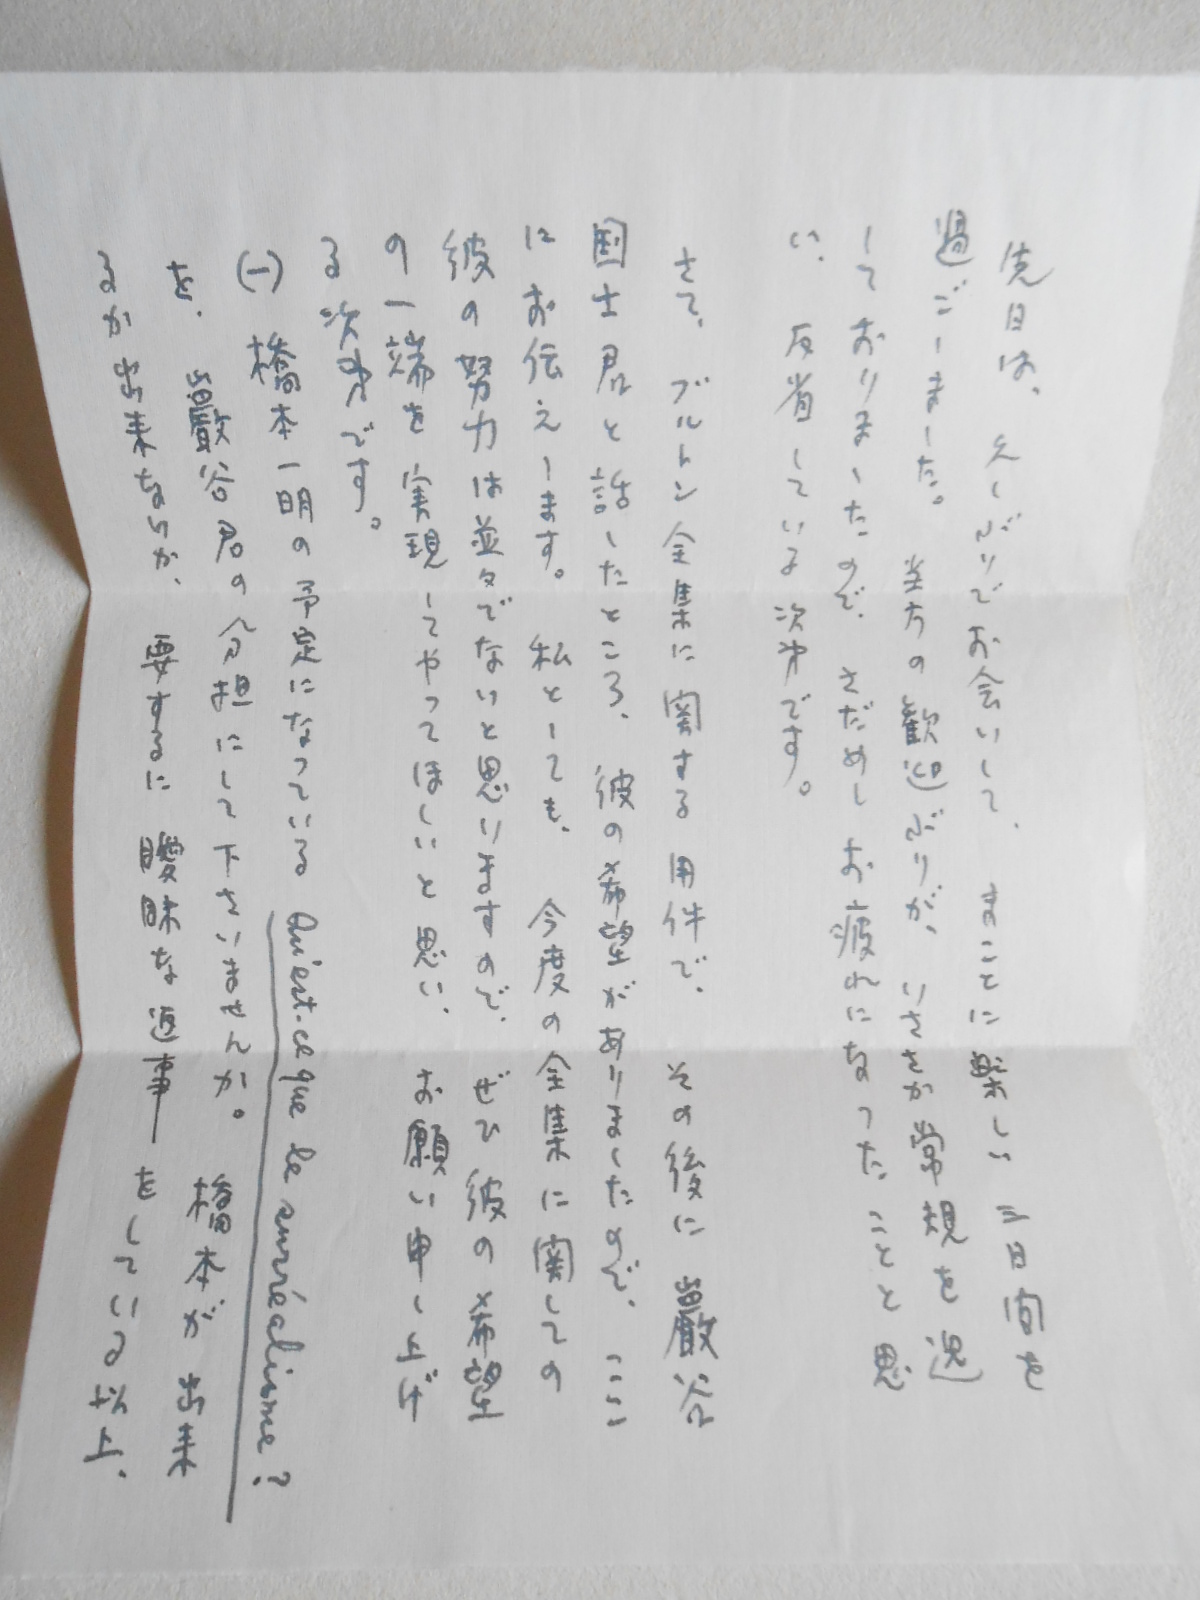 先日は、久しぶりでお会いして、まことに楽しい三日間を
過ごしました。当方の歓迎ぶりが、いささか常規を逸
しておりましたので、さだめしお疲れになったことと思
い、反省している次第です。
さて、ブルトン全集に関する用件で、その後に巖谷
国士君と話したところ、彼の希望がありましたので、ここ
にお伝えします。私としても、今度の全集に関しての
彼の努力は並々でないと思いますので、ぜひ彼の希望
の一端を実現してやってほしいと思い、お願い申し上げ
る次第です。
(一) 橋本一明の予定になっている Qu'est-ce que le surréalisme?
を、巖谷君の分担にして下さいませんか。橋本が出来
るか出来ないか、要するに曖昧な返事――をしている以上、